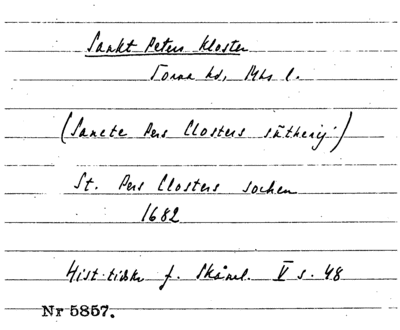 Sankt Peters kloster
Torna hd, Mhs l.
(Sancte Pers Closters sätherij)
St. Pers Closters sochen
1682
Hist. tidskr f. Skånel. V s. 48
Nr 5857.